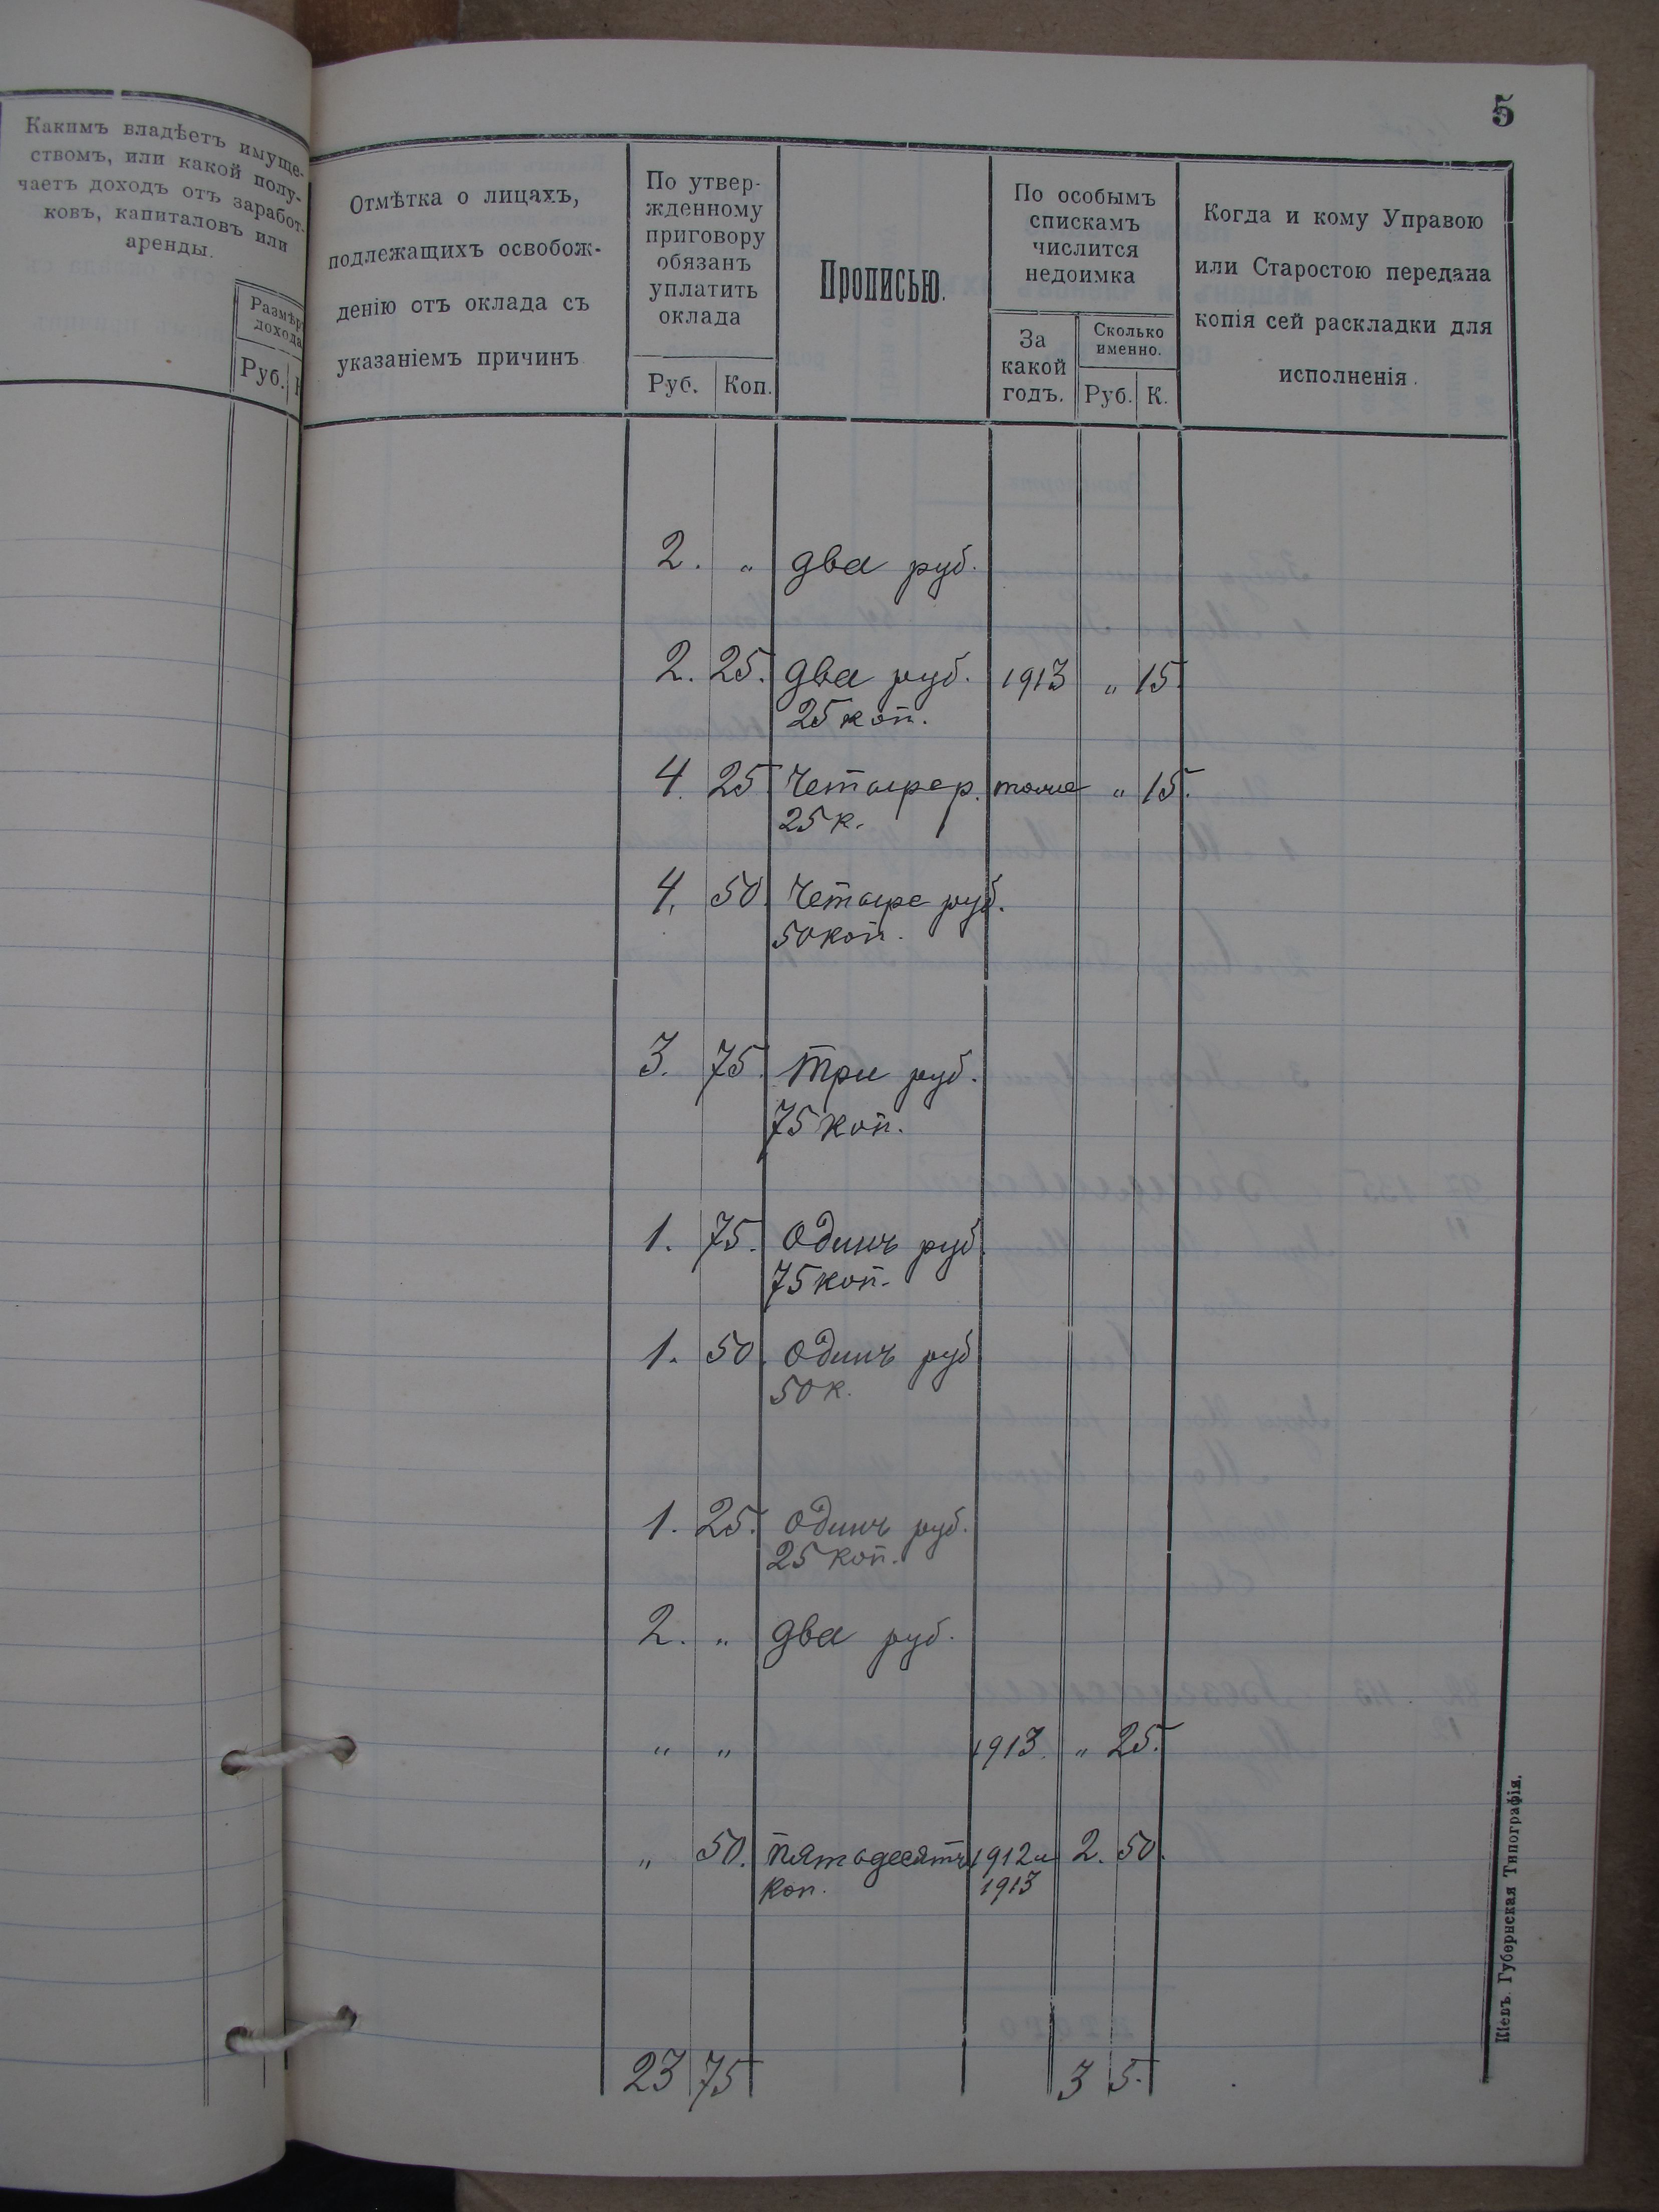 5
Какимъ владѣетъ имуще-
ствомъ, или какой полу-
чаетъ доходъ отъ заработ-
ковъ, капиталовъ или
аренды.
Размѣръ
дохода
Руб.
Отмѣтка о лицахъ,
подлежащихъ освобож-
денію отъ оклада съ
указаніемъ причинъ
По утвер-
жденному
приговору
обязанъ
уплатить
оклада
Руб. Коп.
Прописью.
По особымъ
спискамъ
числится
недоимка
За
какой
годъ.
Сколько
именно.
Руб. К.
Когда и кому Управою
или Старостою передана
копія сей раскладки для
исполненія.
2. „ два руб.
2. 25. два руб. 1913 „ 15.
25 коп.
4. 25 Четыре р. тоже „ 15.
25 к.
4. 50. Четыре руб.
50 коп.
3. 75. Три руб.
75 коп.
1. 75. Одинъ руб.
75 коп.
1. 50. Одинъ руб
50 к.
1. 25. Одинъ руб.
25 коп.
2. „ два руб.
„ „ 1913. „ 25.
„ 50. Пятьдесятъ 1912 и 2. 50.
коп. 1913
23 75 3 5.
Кіевъ. Губернская Типографія.